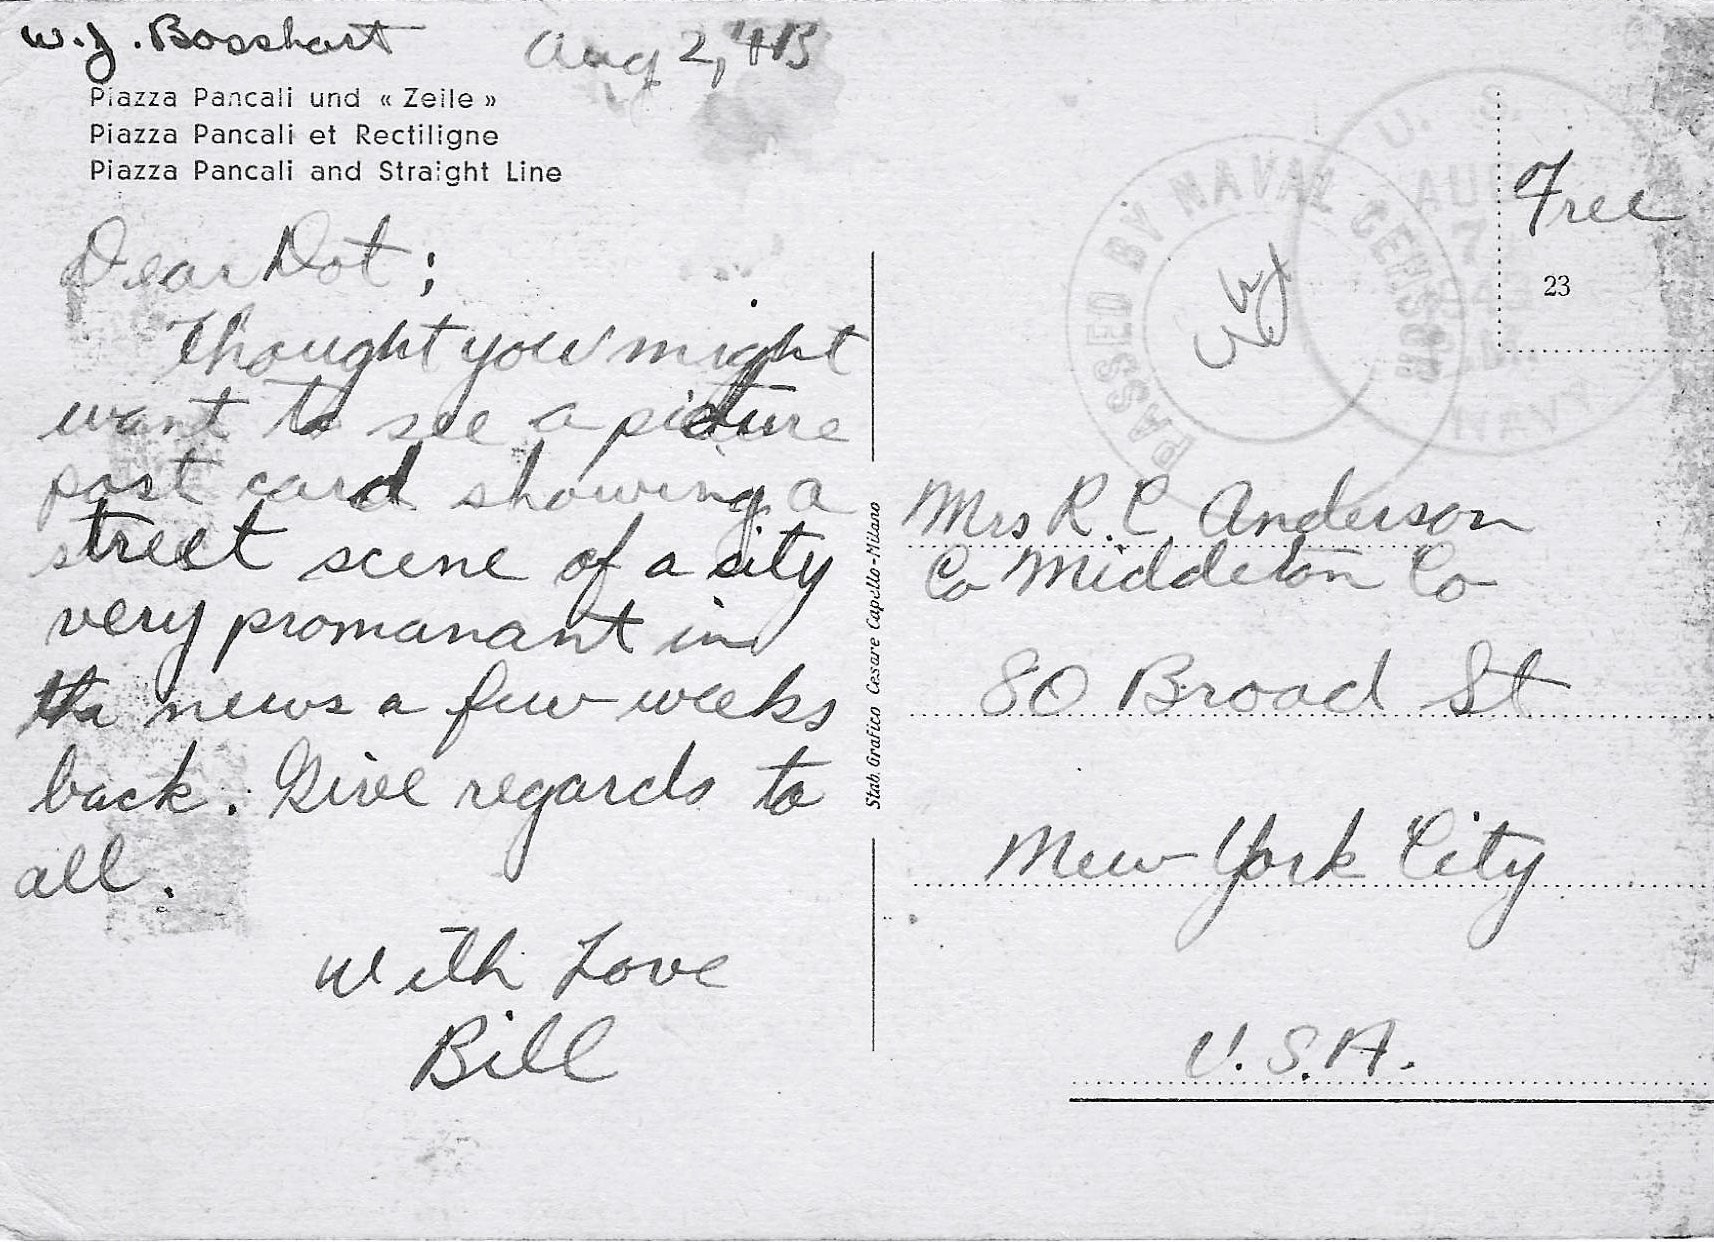 W. J. Bosshart
Aug 2, 43
Piazza Pancali und « Zeile »
Piazza Pancali et Rectiligne
Piazza Pancali and Straight Line
Dear Dot;
Thought you might
want to see a picture
post card showing a
street scene of a city
very promanant in
the news a few weeks
back. Give regards to
all.
With Love
Bill
Stab. Grafico Cesare Capello-Milano
PASSED BY NAVAL CENSOR
U. S.
AUG
7
NAVY
Free
23
Mrs R. C Anderson
Co Middleton Co
80 Broad St
New York City
U.S.A.